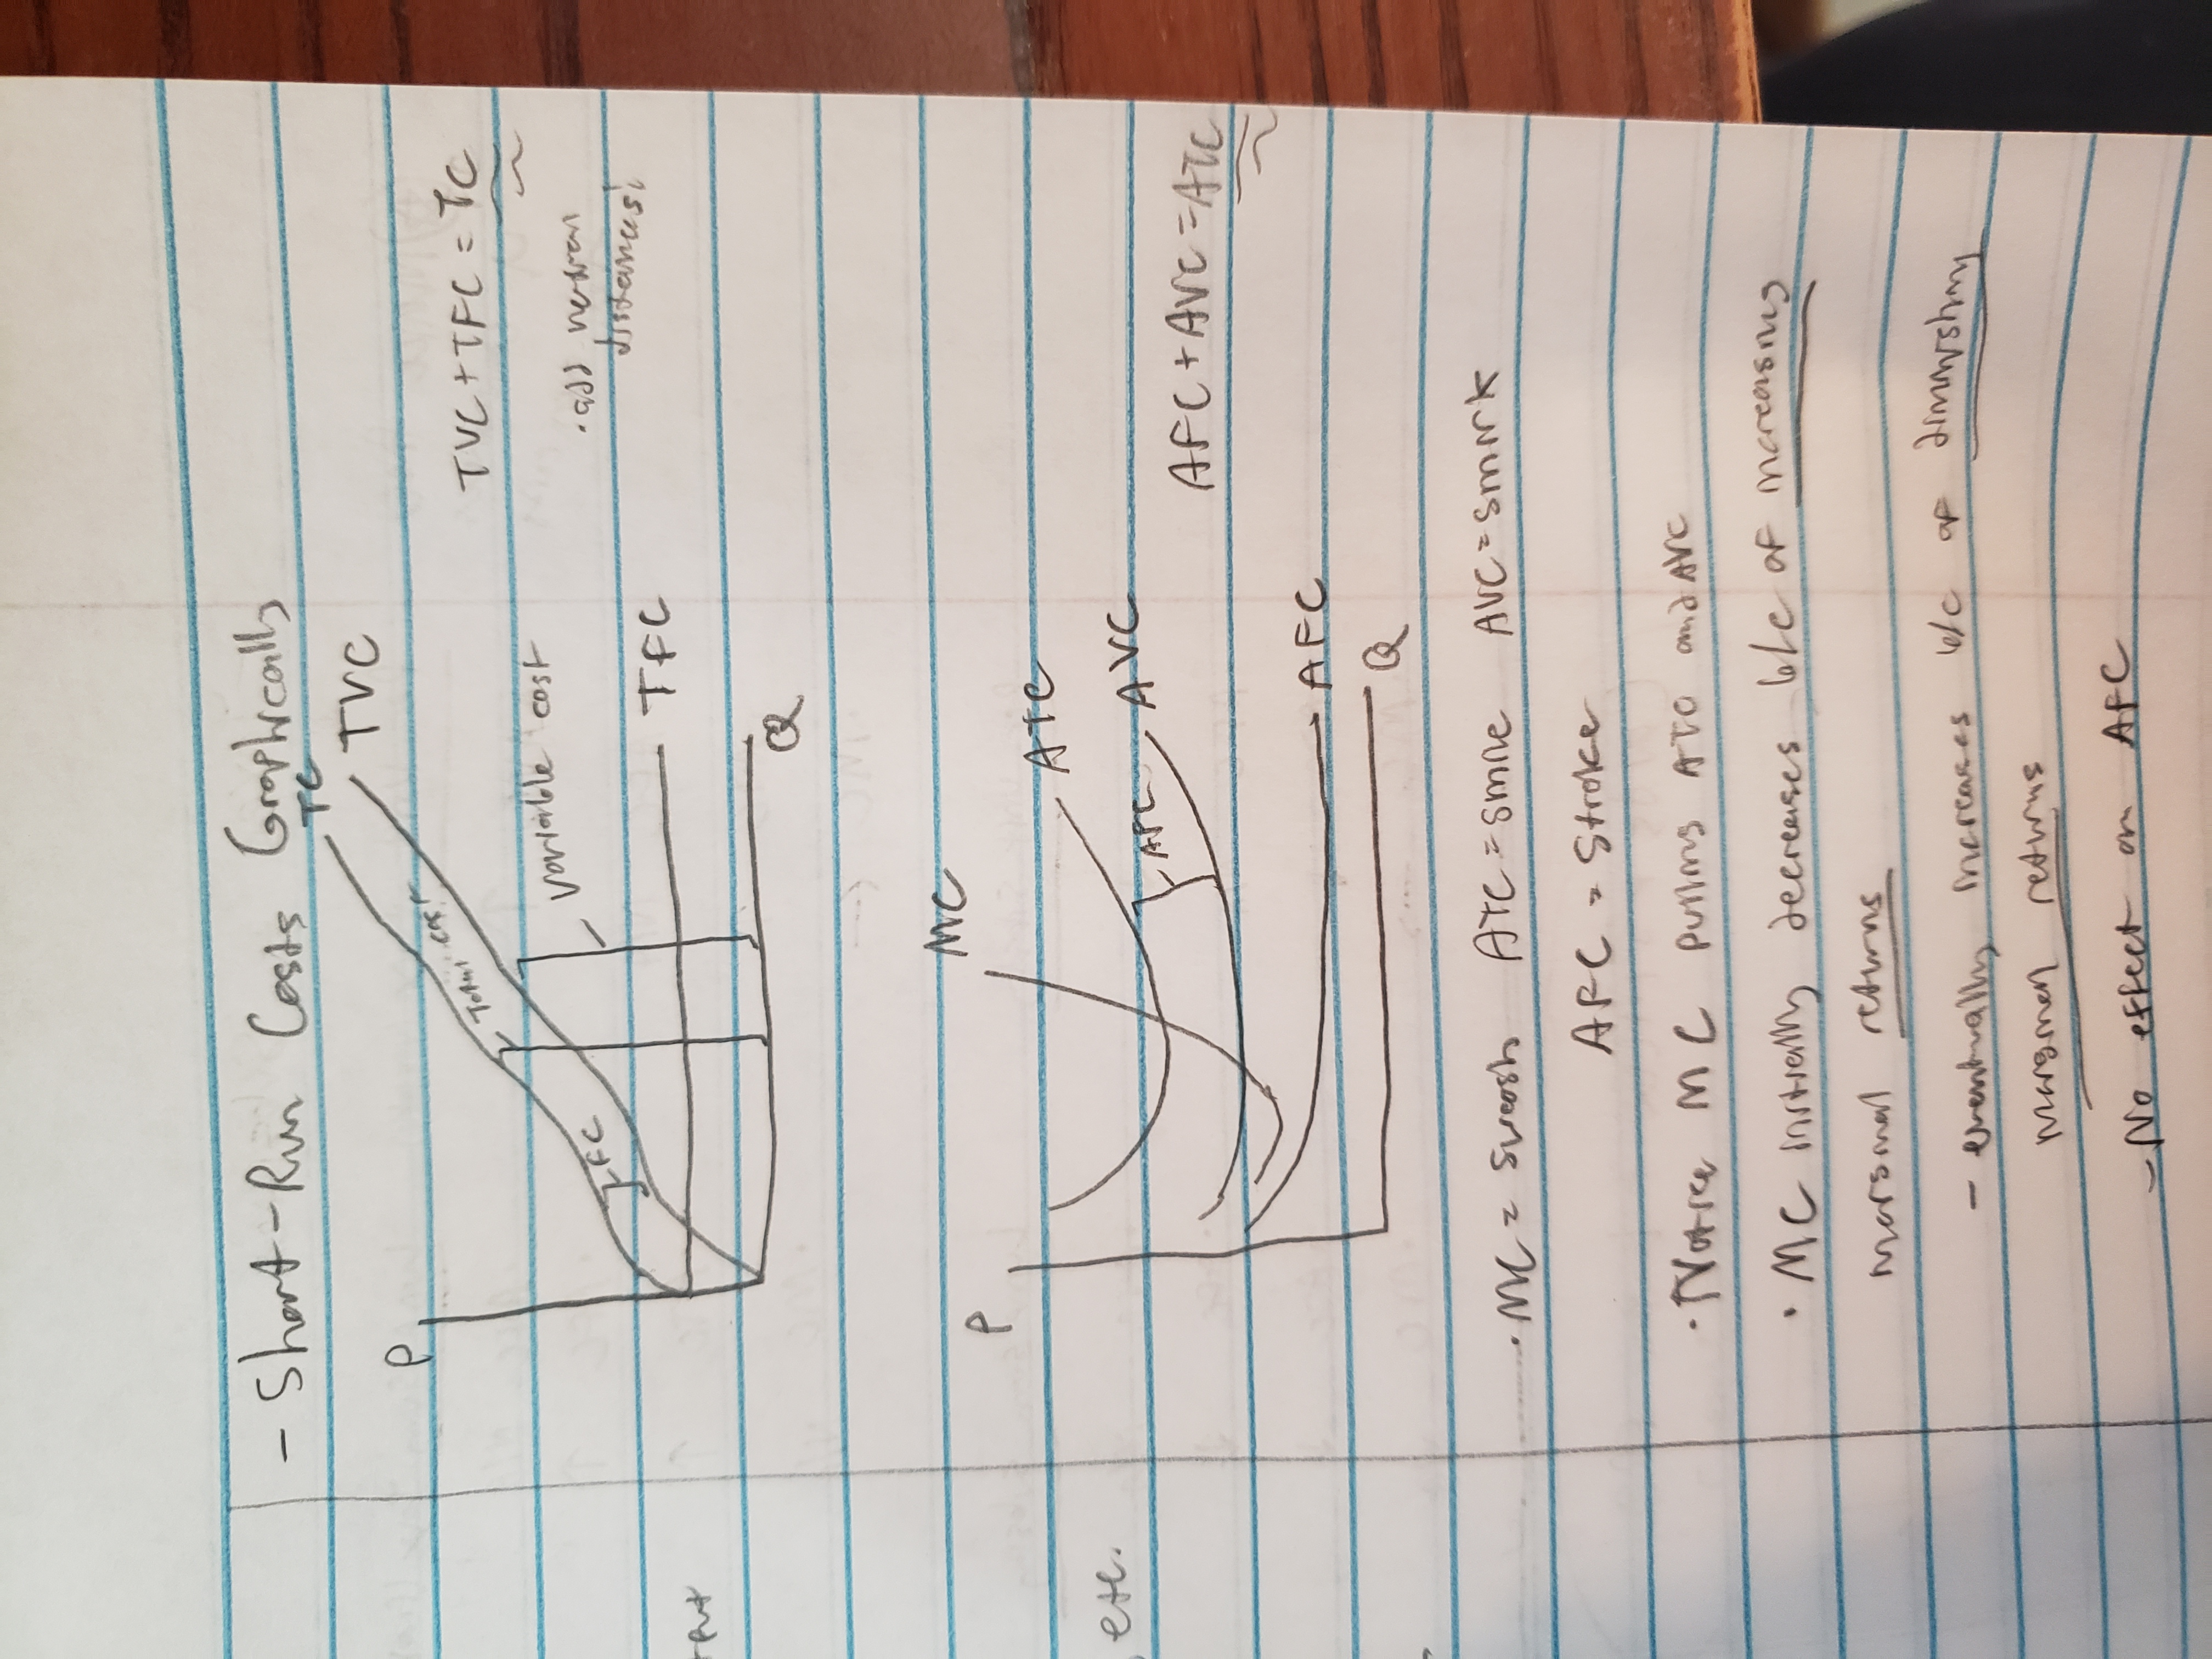 - Short-Run Costs Graphically
TC
TVC
P
TVC + TFC = TC
Total cost
variable cost
· add vertical
distances!
FC
TFC
Q
MC
P
ATC
AVC
AFC
AFC + AVC = ATC
AFC
Q
etc.
· MC = swoosh ATC = smile AVC = smirk
AFC = Stroke
· Notice MC pulling ATC and AVC
· MC initially decreases b/c of increasing
marginal returns
- eventually increases b/c of diminishing
marginal returns
- No effect on AFC